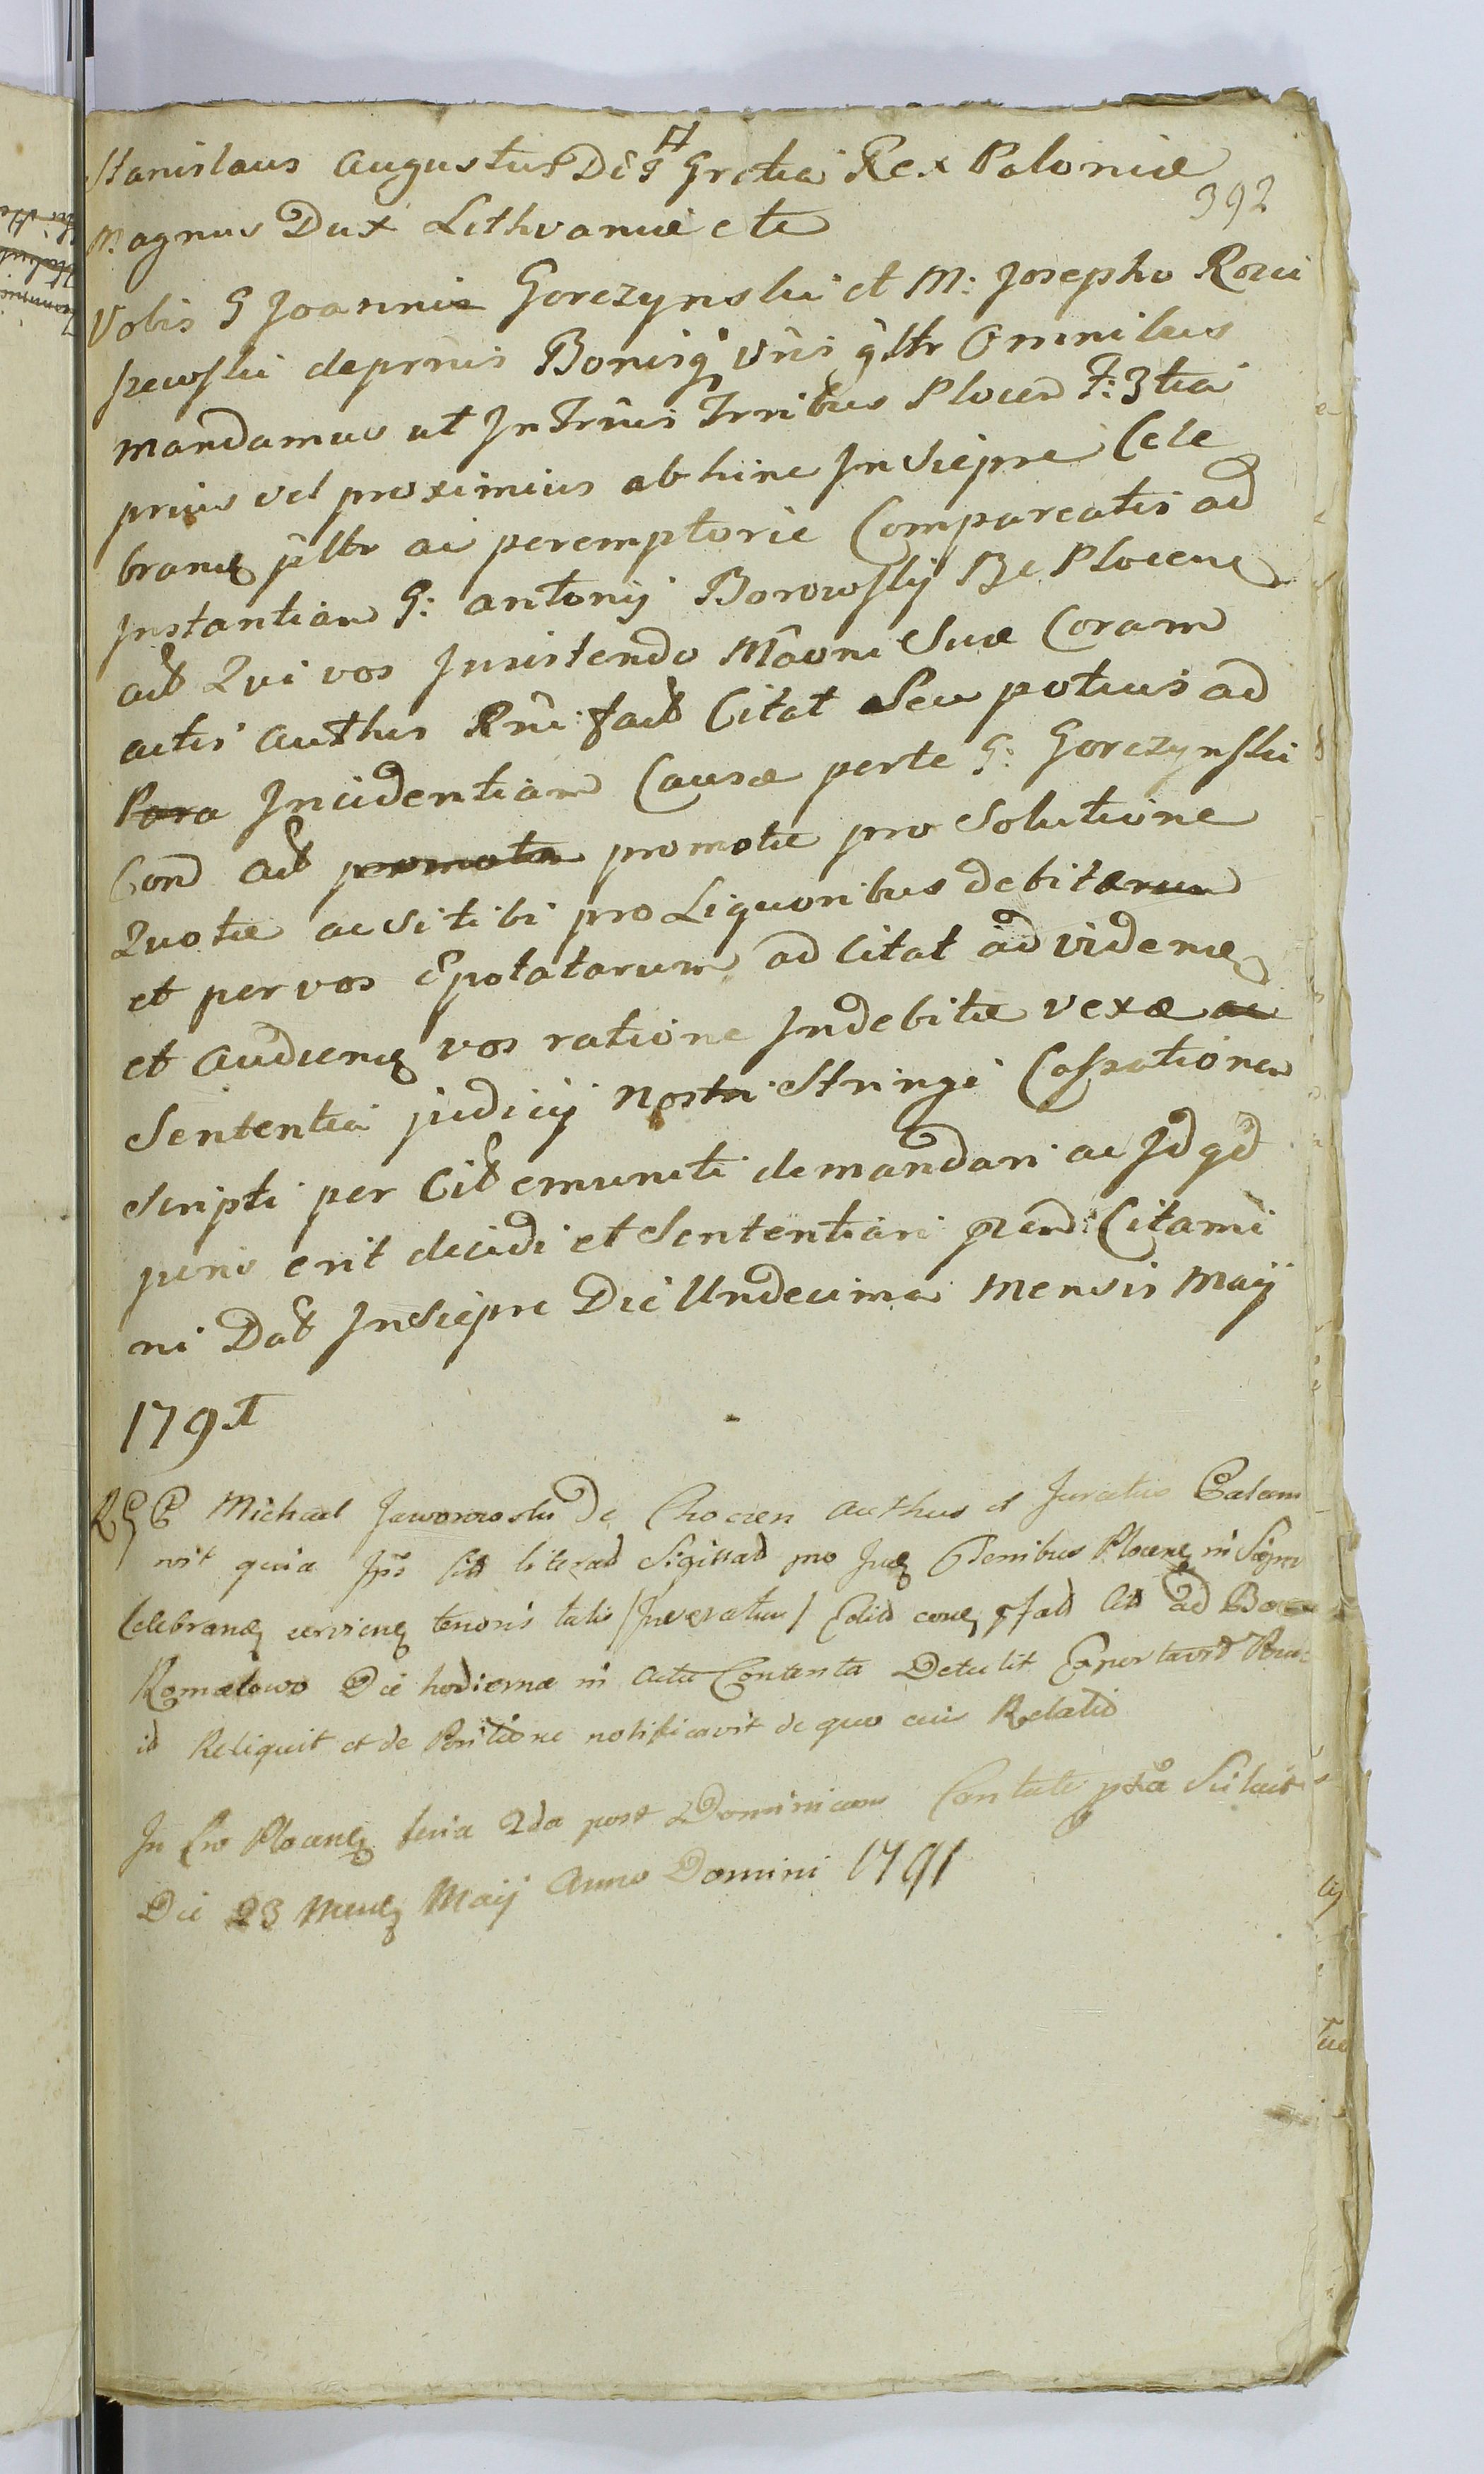 Stanislaus Augustus Dei Gratia Rex Poloniæ
392
Magnus Dux Lithvaniæ etc
Vobis G Joanni Gorczynski et M: Josepho Rosci
szewski de prnis Bonisq vris gltr Omnibus
mandamus ut In Trnis Trribus Plocen F: 3tia
prius vel proximius abhinc In Sieprc Cele
brand pltr ac peremptorie Compareatis ad
Instantiam G: Antonij Borowskij B C Plocenc
act Qui vos Insistendo Mâoni Suæ Coram
actis Authcis Rni fact Citat Seu potius ad
Para Incidentiam Causæ perte G: Gorczynski
Con act promota promotæ pro Solutione
Quotæ ac si tibi pro Liquoribus debitarum
et per vos Epotatarum ad Citat ad vidend
et audiend vos ratione Indebitæ vexæ ac
Sententia judicij nostri Stringi Cassationem
Scripti per Cit emuncti demandari ac Id qd
juris erit decidi et Sententiari pnti Citami
ni Dat In Sieprc Die Undecima Mensis Maij
1791
Michael Jaworowski De Choczen Authus et Juratus Palam
vit quia Ips Cit literad Sigillad pro Jud Trribus Plocen in Sieprc
Celebrand tenoris talis /Inseratur/ Cit ad
Romatowo Die hodierna in actu Contenta Detulit Exportavit
id Reliquit et de Positione notificavit de quo eius Relatio
In Cro Plocen feria 2da post Dominicam Cantate pxa Scilicet
Die 23 Mens Maij Anno Domini 1791